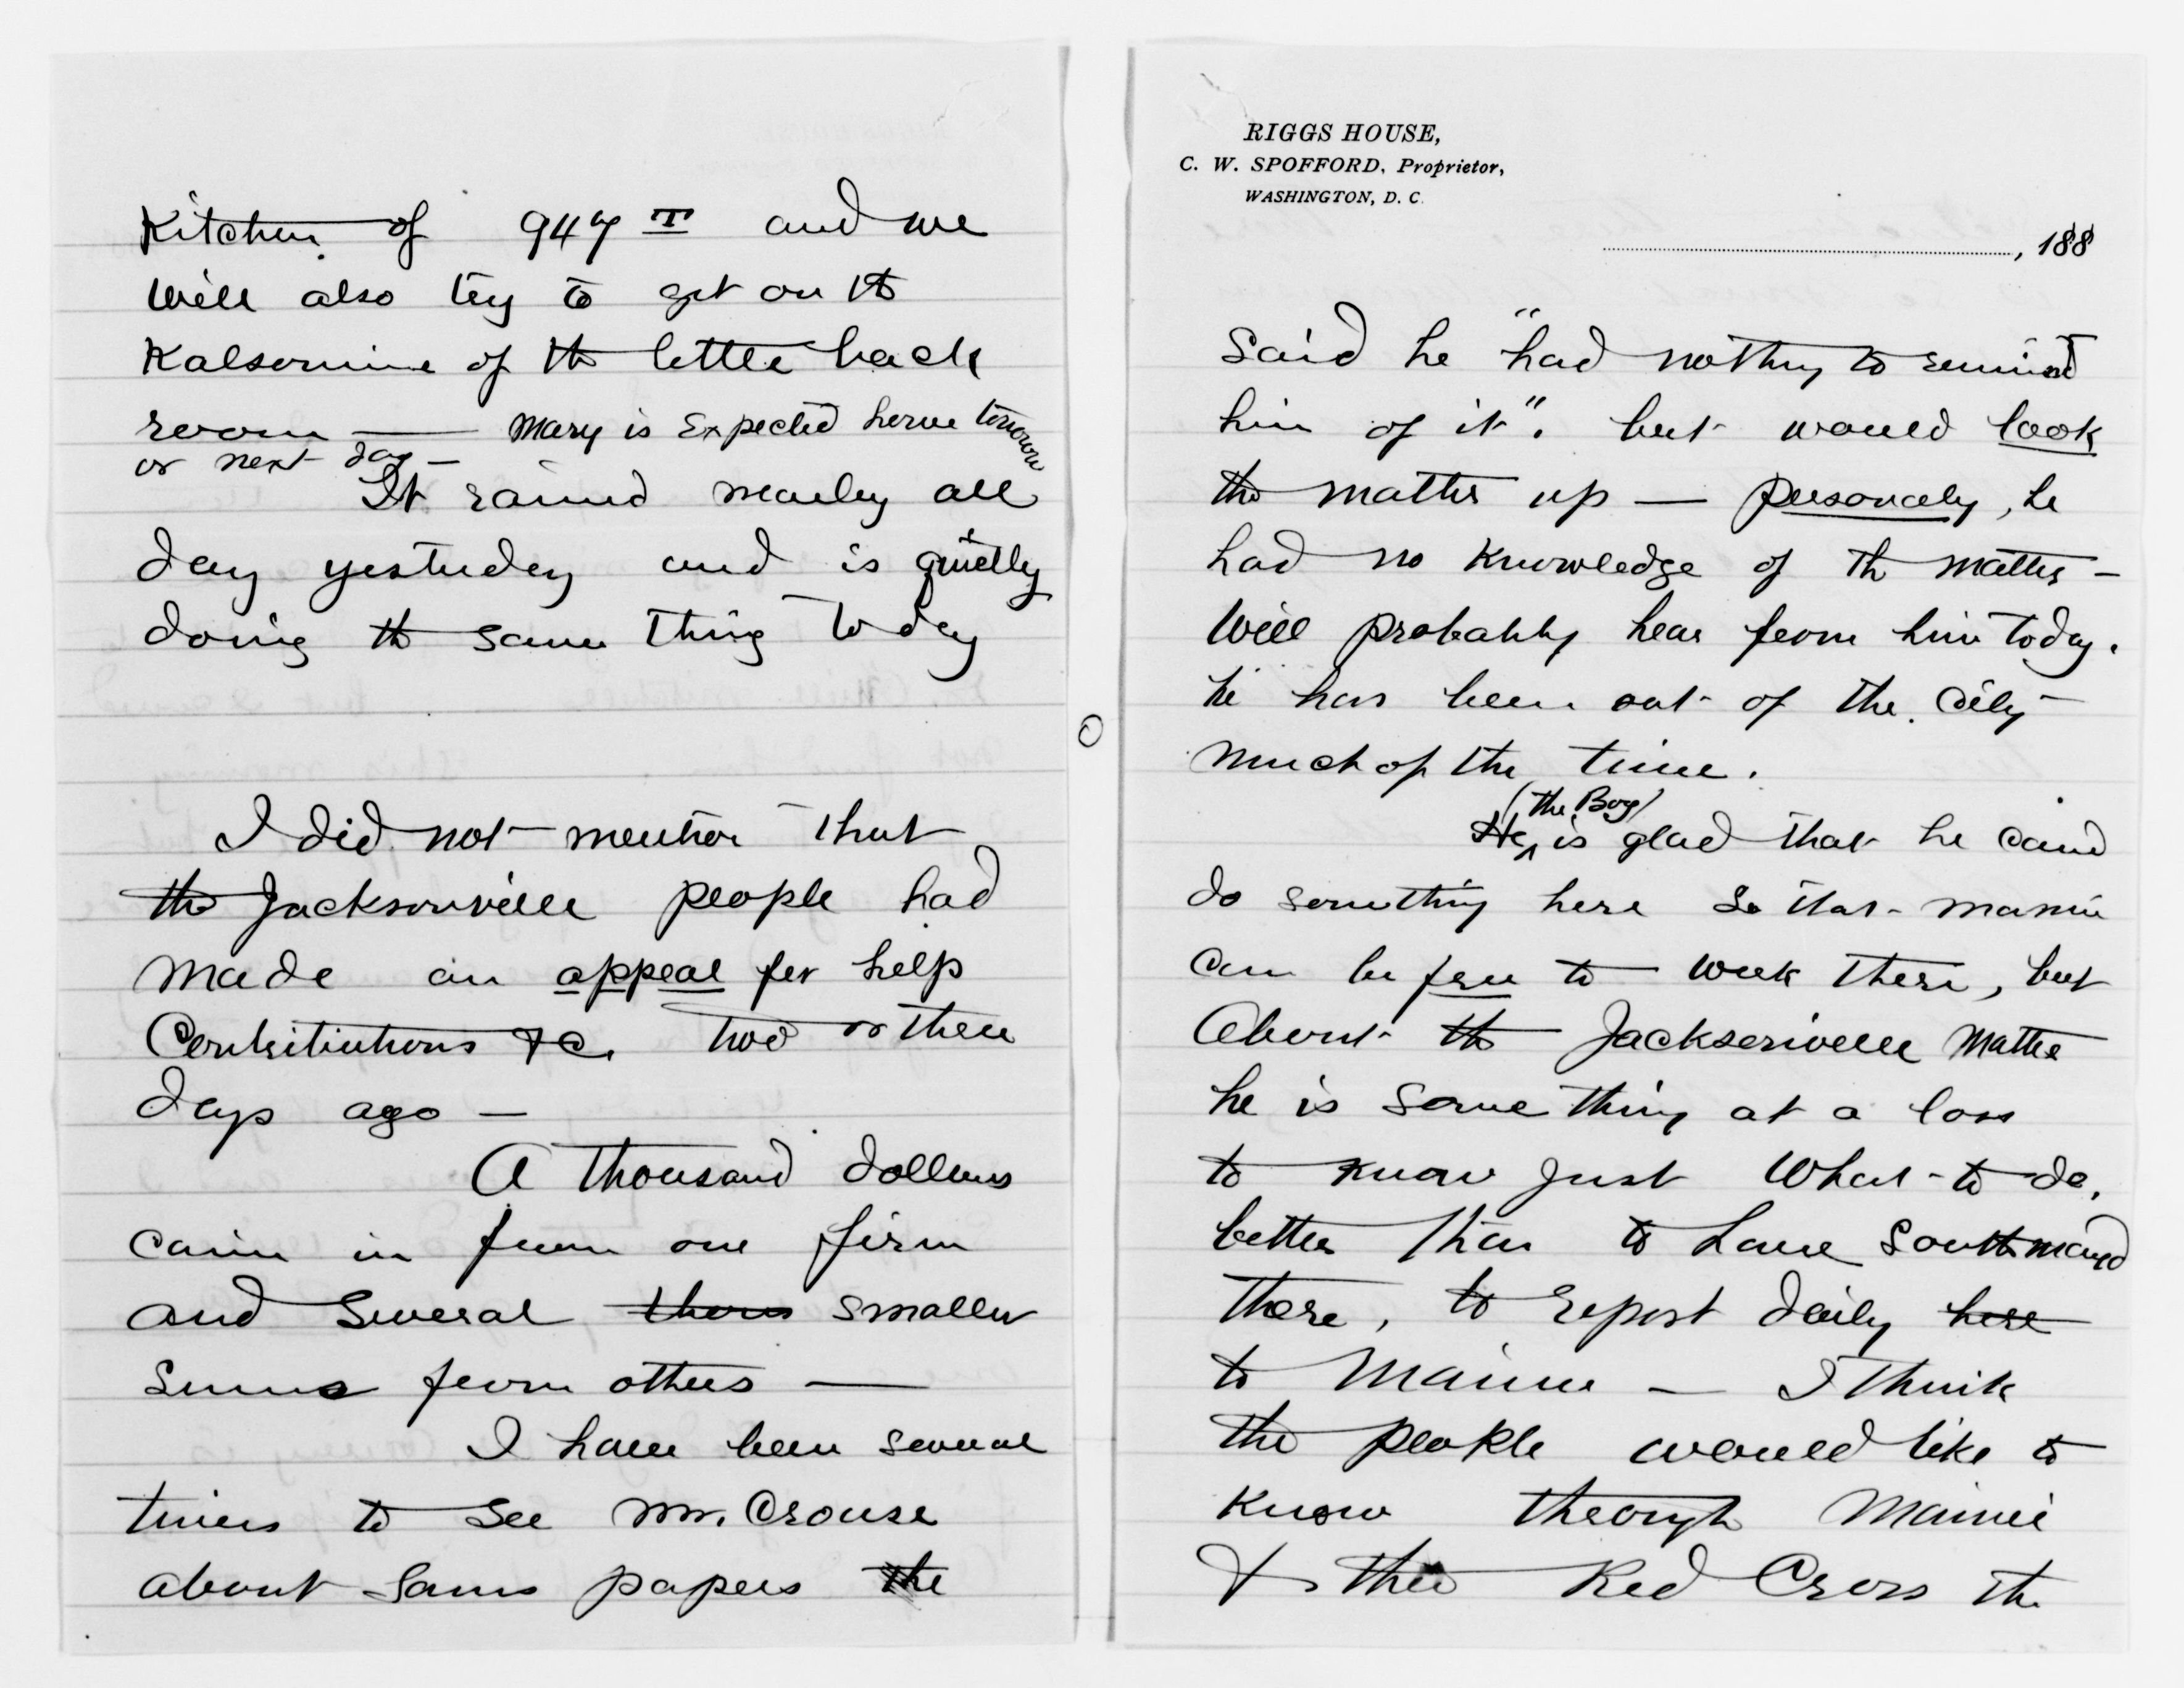 Kitchen of 947 T and we
will also try to get on the
Kalsomine of the little back
room — Mary is Expected home tomorrow
or next day —
It rained nearly all
day yesterday and is quietly
doing the same thing today
I did not mention that
the Jacksonville people had
made an appeal for help
Contributions &c. two or three
days ago —
A thousand dollars
came in from one firm
and several smaller
sums from others —
I have been several
times to see Mr. Crouse
about Sams papers the
RIGGS HOUSE,
C. W. SPOFFORD, Proprietor,
WASHINGTON, D. C.
, 188
Said he "had nothing to remind
him of it". but would look
the matter up — personally, he
had no knowledge of the matter —
Will probably hear from him today.
he has been out of the City
much of the time.
(the Boy)
He is glad that he can
do something here so that Mamie
can be free to work there, but
About the Jacksonville matter
he is something at a loss
to know just what to do,
better than to have Southmayd
there, to report daily here
to Mamie — I think
the people would like to
know through Mamie
& the Red Cross the